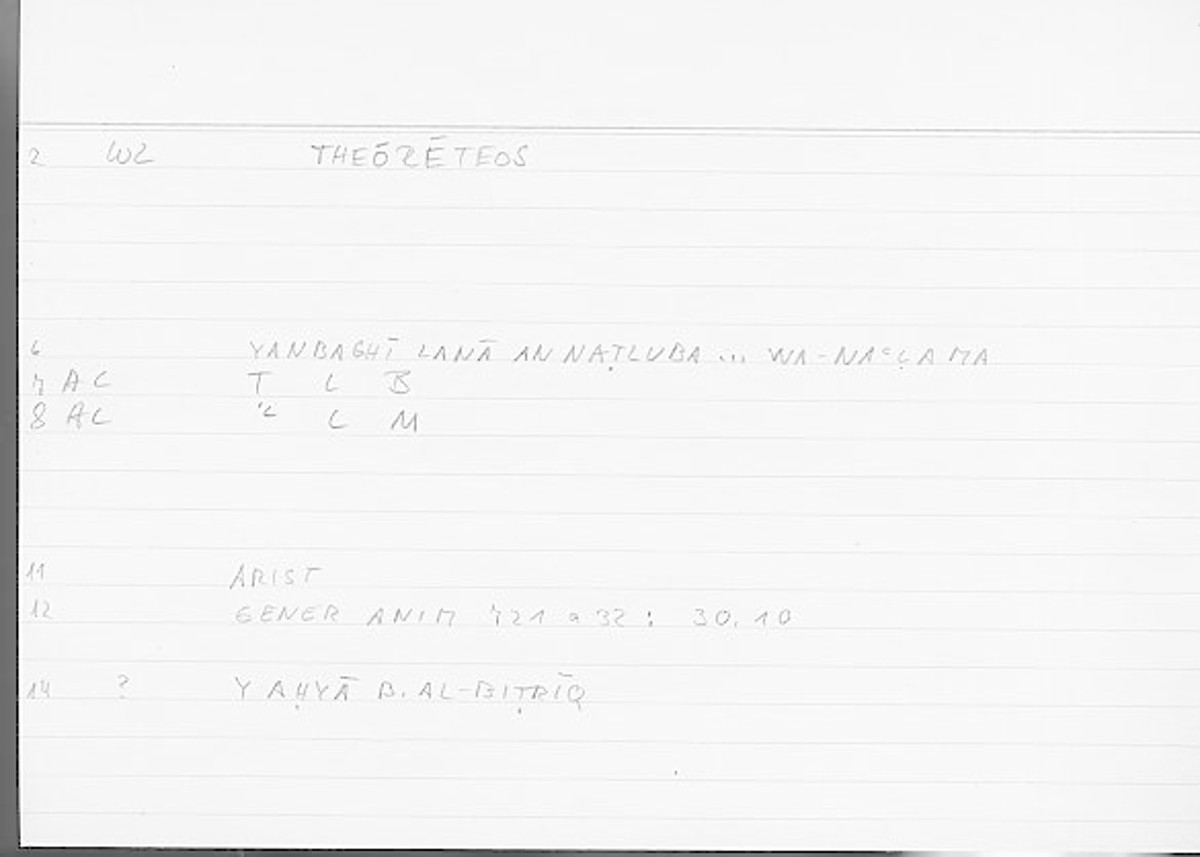 2 WZ THEŌRĒTEOS
6 YANBAGHĪ LANĀ AN NAṬLUBA ... WA-NAʿLAMA
7 AC T L B
8 AC ʿ L M
11 ARIST
12 GENER ANIM 721 a 32 : 30.10
14 ? YAḤYĀ B. AL-BIṬRĪQ